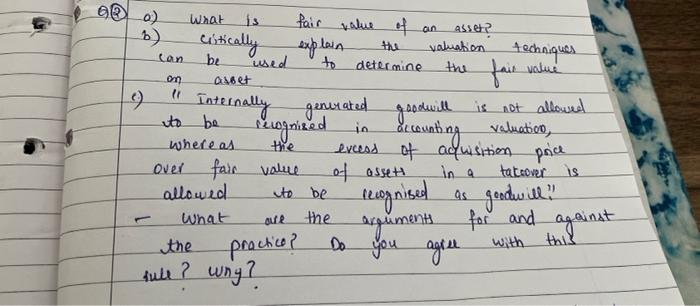 Q2 a) What is fair value of an asset?
b) Critically explain the valuation techniques
can be used to determine the fair value
on asset
c) "Internally generated goodwill is not allowed
to be recognized in accounting valuation,
whereas the excess of acquisition price
over fair value of assets in a takeover is
allowed to be recognised as goodwill!"
- What are the arguments for and against
the practice? Do you agree with this
rule? Why?